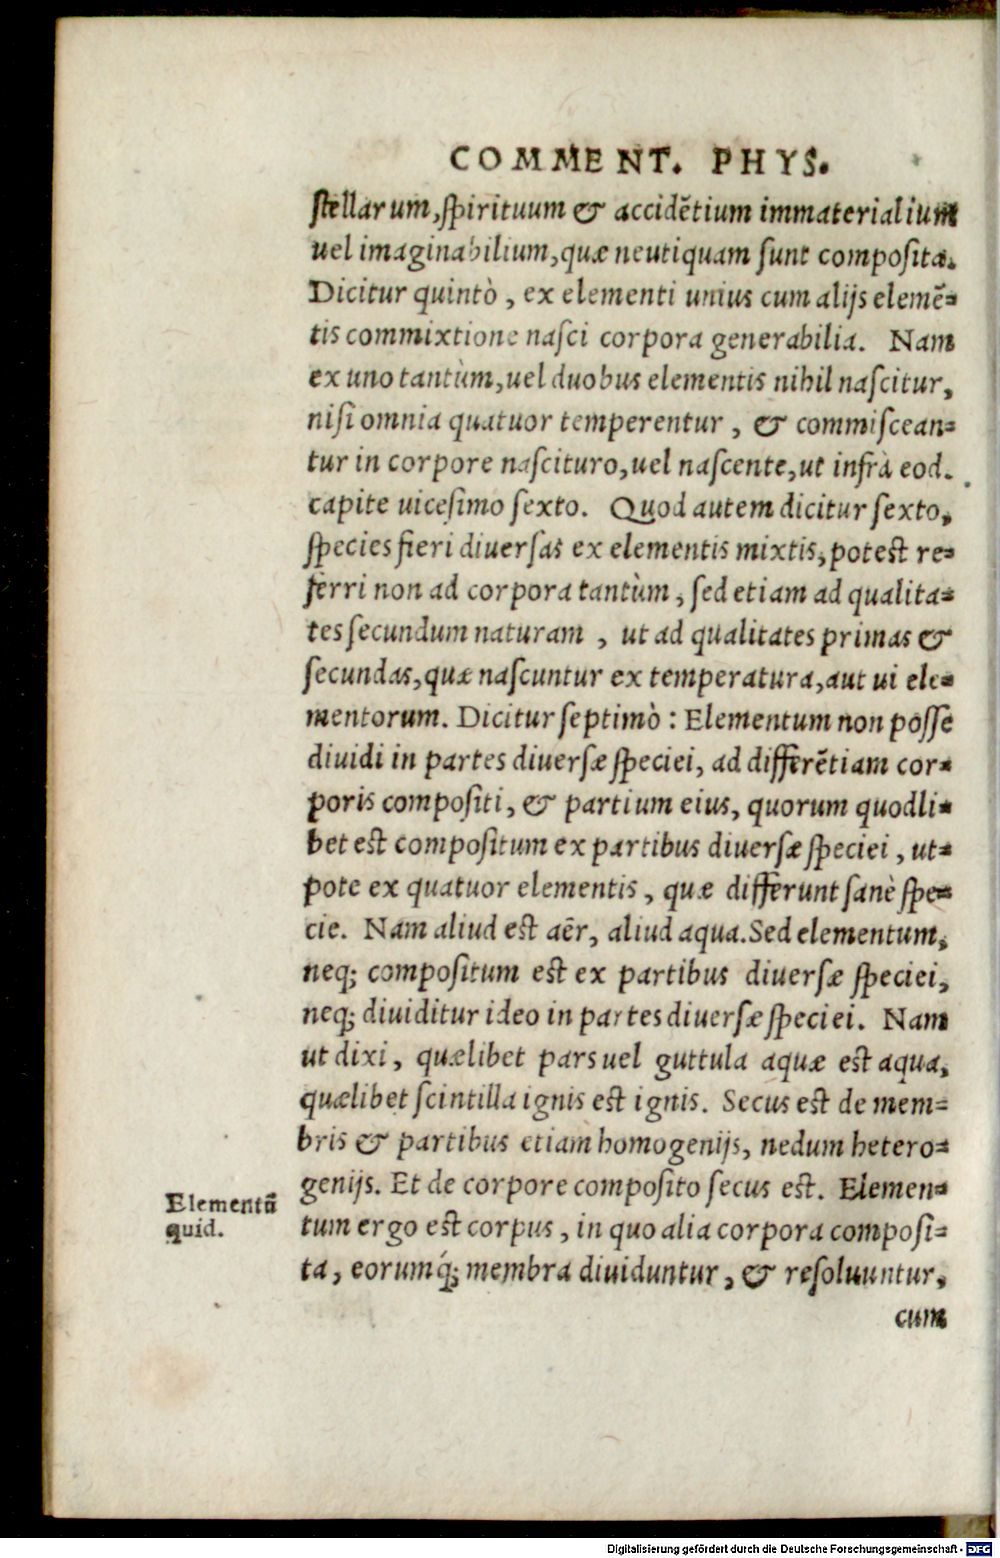 COMMENT. PHYS.
ſtellarum, ſpirituum & accidẽtium immaterialium
uel imaginabilium, quæ neutiquam ſunt compoſita.
Dicitur quintò, ex elementi unius cum alijs elemẽ-
tis commixtione naſci corpora generabilia. Nam
ex uno tantùm, uel duobus elementis nihil naſcitur,
niſi omnia quatuor temperentur, & commiſcean-
tur in corpore naſcituro, uel naſcente, ut infrà eod.
capite uiceſimo ſexto. Quod autem dicitur ſexto,
ſpecies fieri diuerſas ex elementis mixtis, poteſt re-
ferri non ad corpora tantùm, ſed etiam ad qualita-
tes ſecundum naturam, ut ad qualitates primas &
ſecundas, quæ naſcuntur ex temperatura, aut ui ele-
mentorum. Dicitur ſeptimò: Elementum non poſſe
diuidi in partes diuerſæ ſpeciei, ad differẽtiam cor-
poris compoſiti, & partium eius, quorum quodli-
bet eſt compoſitum ex partibus diuerſæ ſpeciei, ut-
pote ex quatuor elementis, quæ differunt ſanè ſpe-
cie. Nam aliud eſt aẽr, aliud aqua. Sed elementum,
neq; compoſitum eſt ex partibus diuerſæ ſpeciei,
neq; diuiditur ideo in partes diuerſæ ſpeciei. Nam
ut dixi, quælibet pars uel guttula aquæ eſt aqua,
quælibet ſcintilla ignis eſt ignis. Secus eſt de mem-
bris & partibus etiam homogenijs, nedum hetero-
genijs. Et de corpore compoſito ſecus eſt. Elemen-
tum ergo eſt corpus, in quo alia corpora compoſi-
ta, eorumq́; membra diuiduntur, & reſoluuntur,
cum
Elementũ
quid.
Digitalisierung gefördert durch die Deutsche Forschungsgemeinschaft - DFG